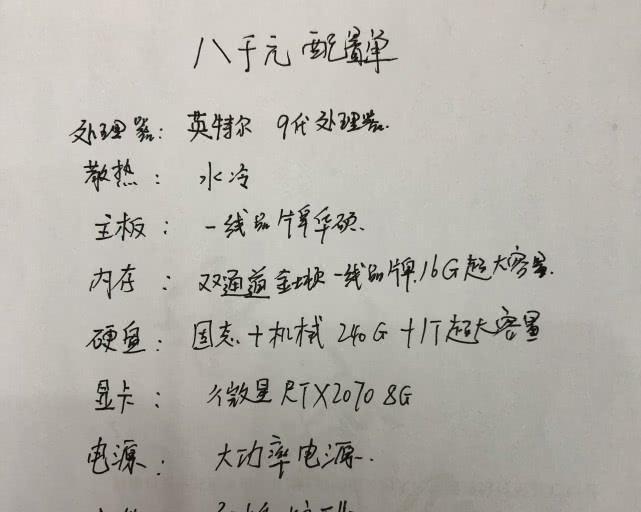 八千元配置单
处理器：英特尔 9代处理器.
散热：水冷
主板：一线品牌华硕.
内存：双通道金士顿一线品牌.16G超大容量.
硬盘：固态+机械 240G+1T超大容量
显卡：微星RTX2070 8G
电源：大功率电源.